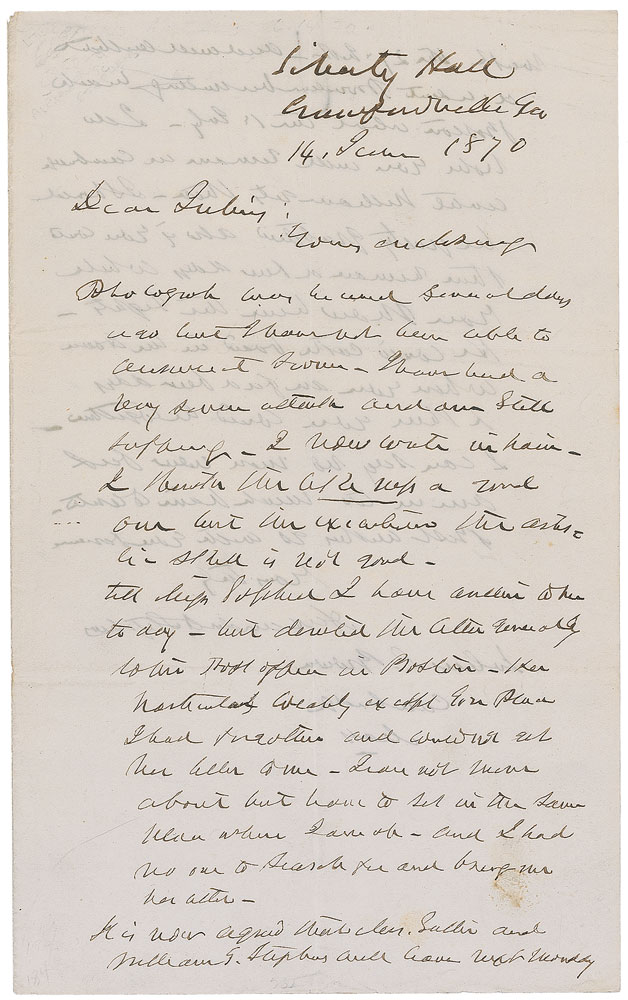 Liberty Hall
Crawfordville Ga
14. June 1870
Dear Julius;
Yours enclosing
Photograph was received several days
ago but I have not been able to
answer it sooner - I have had a
very severe attack and am still
suffering - I now write in pain -
I think the likeness a good
one but the execution the artis=
tic skill is not good -
tell Miss I have written to her
to day - but directed the letter generally
to the Post office in Boston - Her
particular locality except your Place
I had forgotten and could not get
her letter to me - I can not move
about but have to sit in the same
place where I am at - and I had
no one to search for and bring me
her letter -
It is now agreed that Mrs. and
William G. Stephens will leave next Monday